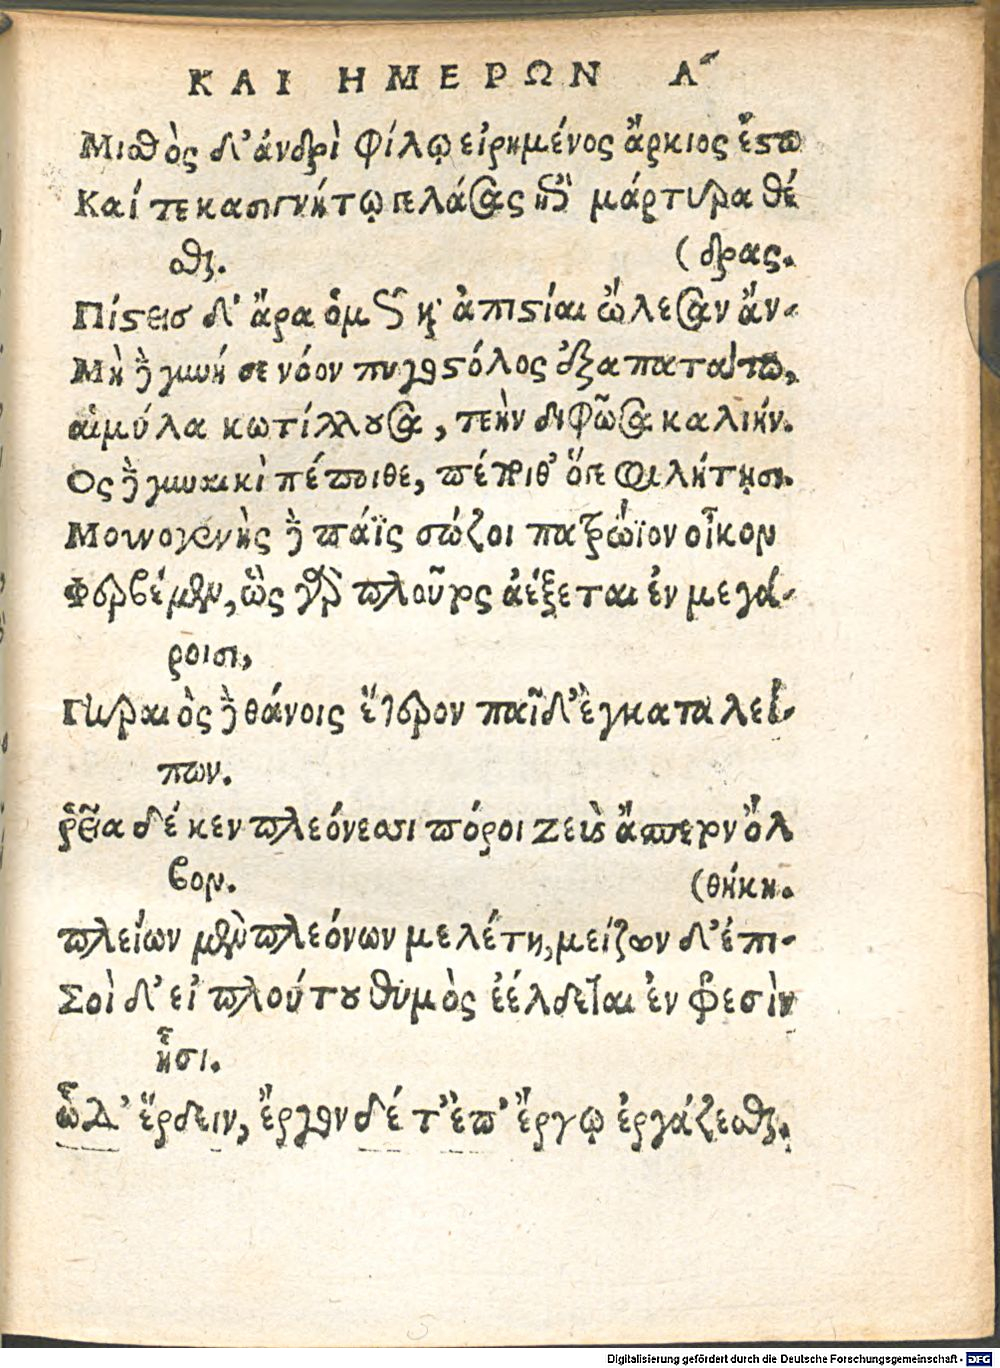 ΚΑΙ ΗΜΕΡΩΝ Α
Μισθὸς δ' ἀνδρὶ φίλῳ εἰρημένος ἄρκιος ἔστω
Καί τε κασιγνήτῳ γελάσας ἐπὶ μάρτυρα θέ
σθαι. (δρας.
Πίστεισ δ' ἄρα ὁμῶς καὶ ἀπιστίαι ὤλεσαν ἄν-
Μὴ δὲ γυνή σε νόον πυγοστόλος ἐξαπατάτω,
αἱμύλα κωτίλλουσα, τεὴν διφῶσα καλιήν.
Ος δὲ γυναικὶ πέποιθε, πέποιθ' ὅγε φιλήτῃσι.
Μουνογενὴς δὲ πάϊς σώζοι πατρώϊον οἶκον
Φερβέμεν, ὣς γὰρ πλοῦτος ἀέξεται ἐν μεγά-
ροισι,
Γηραιὸς δὲ θάνοις ἕτερον παῖδ' ἐγκαταλεί-
πων.
ῥεῖα δέ κεν πλεόνεσσι πόροι Ζεὺς ἄσπετον ὄλ
βον. (θήκη.
πλείων μὲν πλεόνων μελέτη, μείζων δ' ἐπι-
Σοὶ δ' εἰ πλούτου θυμὸς ἐέλδεται ἐν φρεσὶν
ᾗσι.
ὧδ' ἔρδειν, ἔργον δέ τ' ἐπ' ἔργῳ ἐργάζεσθαι.
Digitalisierung gefördert durch die Deutsche Forschungsgemeinschaft - DFG